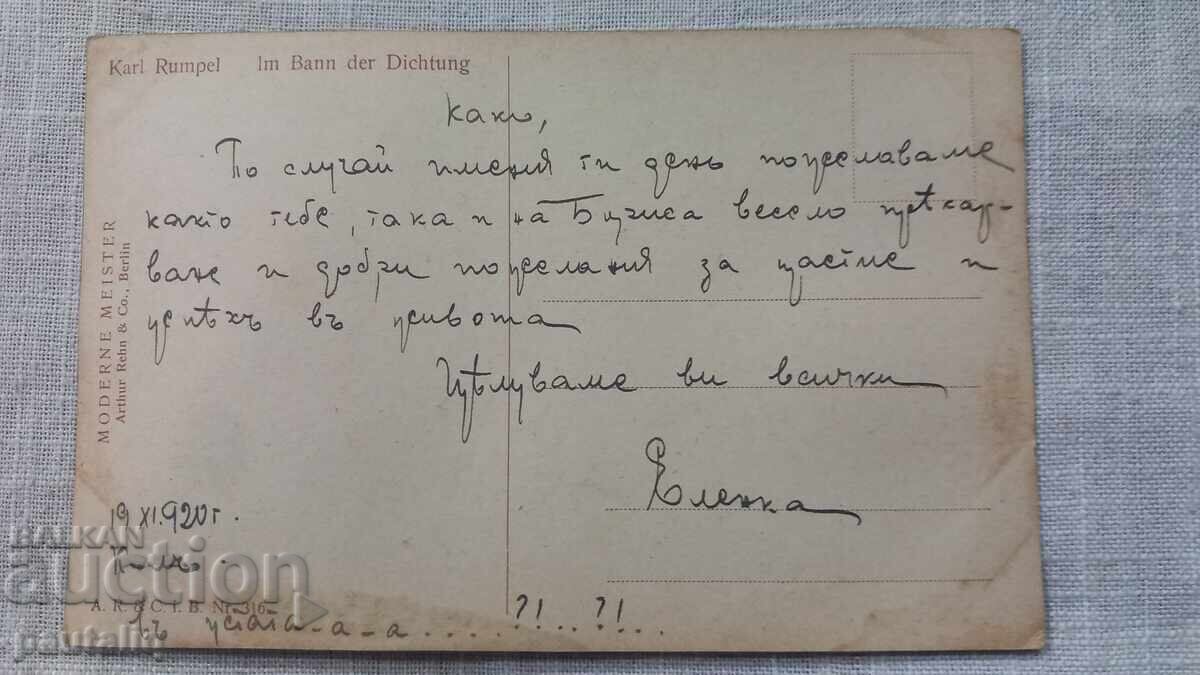 Karl Rumpel Im Bann der Dichtung
Како,
По случай имения ти день пожелаваме
както тебе, така и на весело прѣкар-
ване и добри пожелания за щастие и
успѣхъ въ живота
Цѣлуваме ви всички
Еленка
MODERNE MEISTER
Arthur Rehn & Co., Berlin
19 XI.920 г.
A. R. & C. i. B. Nr. 316
въ устата-а-а....?!..?!..
BALKAN
auction
pautalia